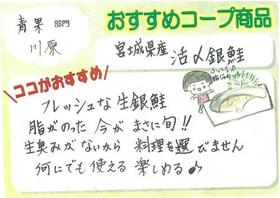 青果 部門
川原
おすすめコープ商品
宮城県産 活〆銀鮭
ココがおすすめ
フレッシュな生銀鮭
脂がのった 今が まさに旬!!
生臭みがないから 料理を選びません
何にでも使える 楽しめる♪